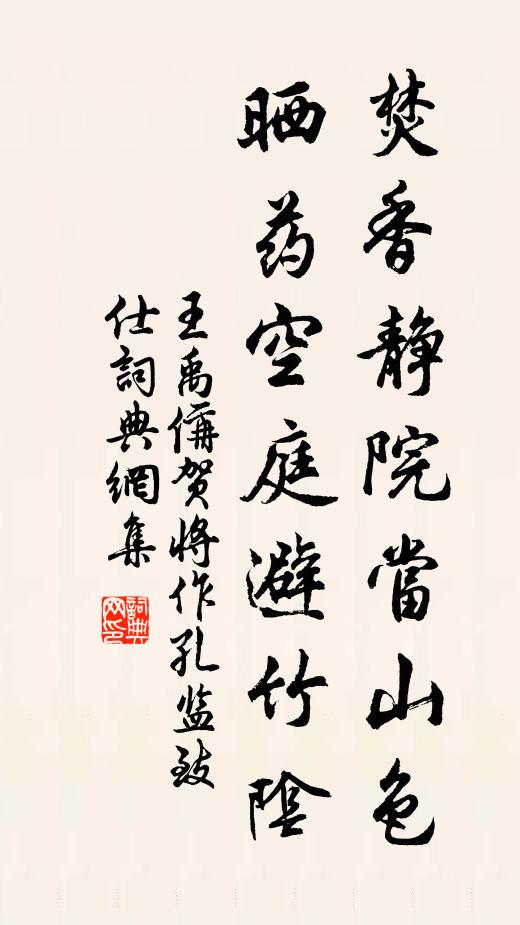 焚香静院當山色
晒药空庭避竹陰
王禹偁贺将作孔监致
仕詞典網集
詞典
网印